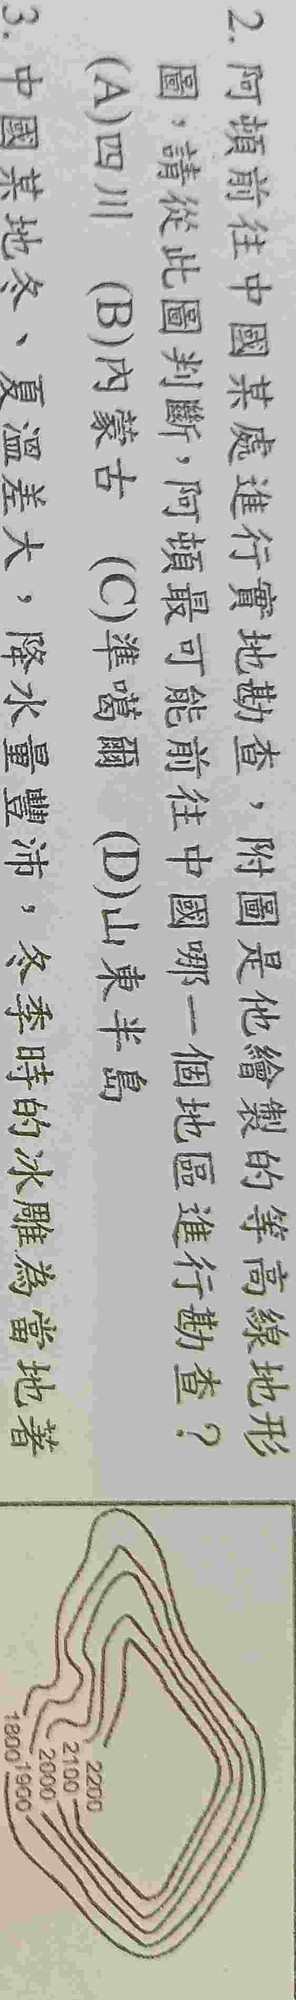 2. 阿頓前往中國某處進行實地勘查，附圖是他繪製的等高線地形
圖，請從此圖判斷，阿頓最可能前往中國哪一個地區進行勘查？
(A)四川 (B)內蒙古 (C)準噶爾 (D)山東半島
3. 中國某地冬、夏溫差大，降水量豐沛，冬季時的冰雕為當地著
2200
2100
2000
1900
1800